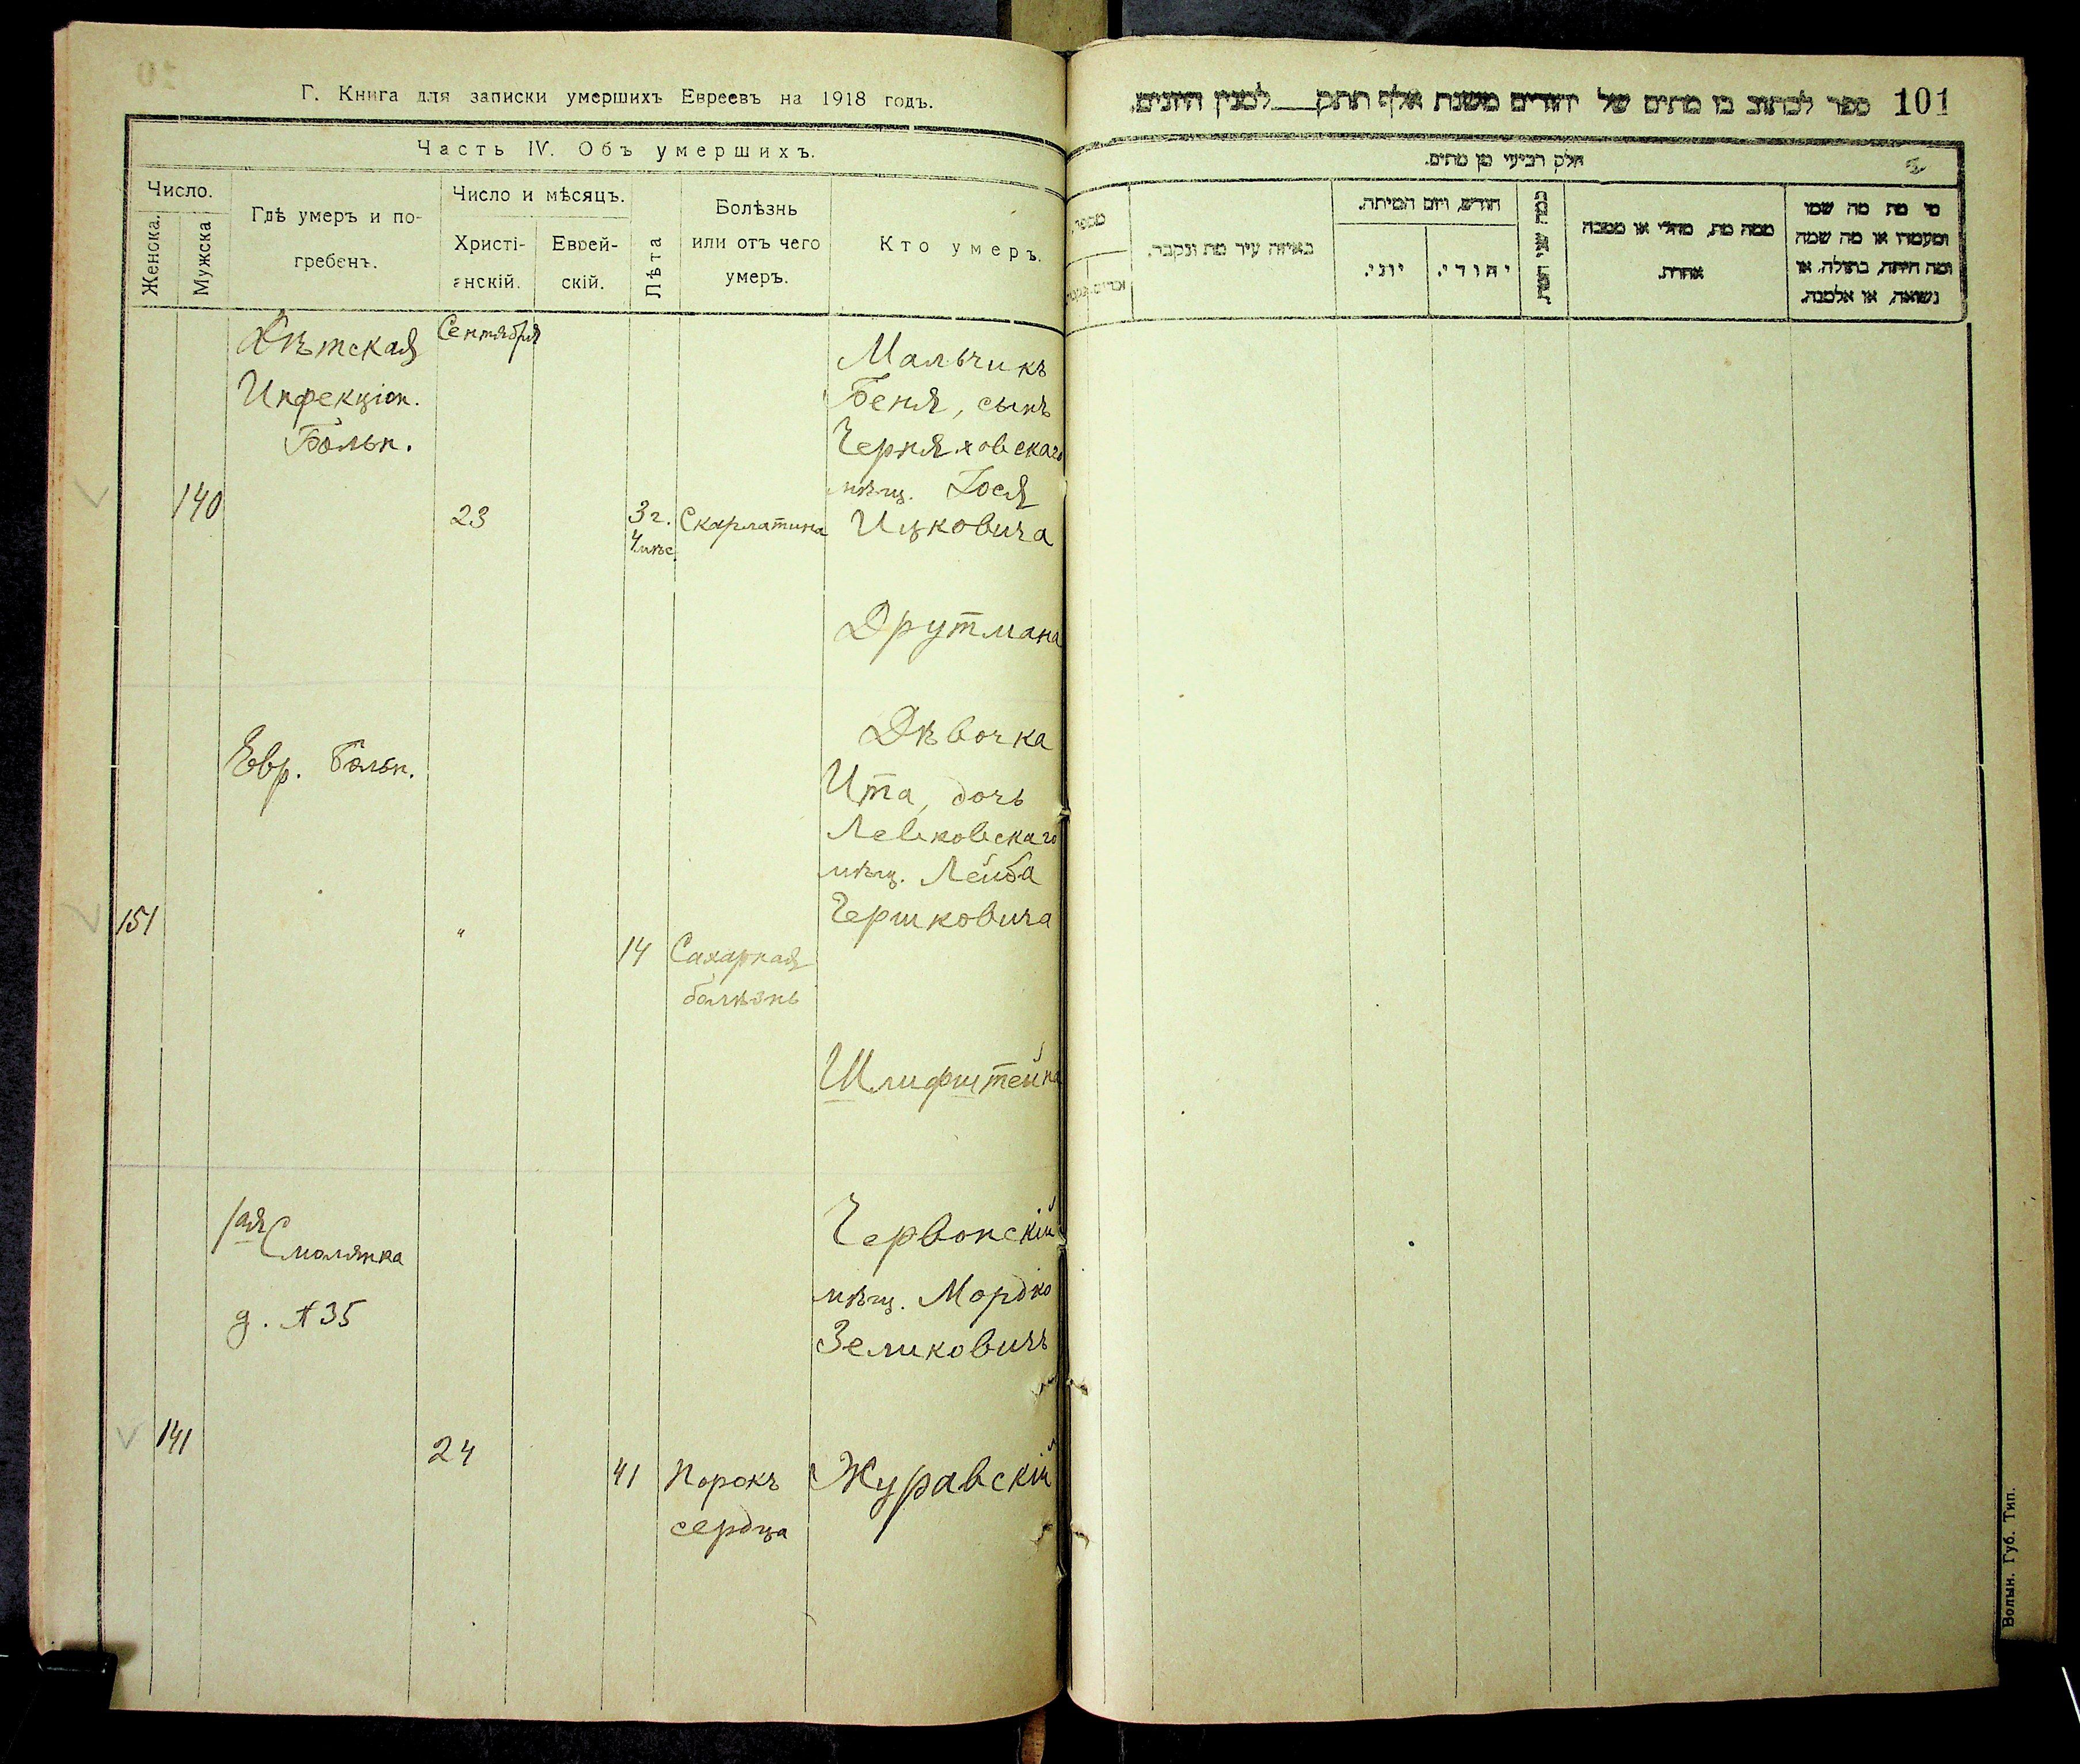 Г. Книга для записки умершихъ Евреевъ на 1918 годъ.
Часть IV. Объ умершихъ.
Число.
Женска.
Мужска
Гдѣ умеръ и по-
гребенъ.
Число и мѣсяцъ.
Христі-
анскій.
Еврей-
скій.
Лѣта
Болѣзнь
или отъ чего
умеръ.
Кто умеръ.
Дѣтская
Инфекціон.
Больн.
Сентября
140
23
3 г.
4 мѣс.
Скарлатина
Мальчикъ
Беня, сынъ
Черняховскаго
мѣщ. Іося
Ицковича
Друтмана
Евр. Больн.
151
"
14
Сахарная
болѣзнь
Дѣвочка
Ита, дочь
Левковскаго
мѣщ. Лейба
Гершковича
Шлифштейна
1ая Смолянка
д. № 35
141
24
41
Порокъ
сердца
Червонскій
мѣщ. Мордко
Зеликовичъ
Журавскій
ספר לכתוב בו מתים של יהודים משנת אלף תתק__למנין היונים. 101
חלק רביעי מן מתים.
מספר.
באיזה עיר מת ונקבר.
חודש, ויום המיתה.
יוני.
יהודי.
ממה מת, מחלי או מסבה
אחרת.
מי מת מה שמו
ומעמדו או מה שמה
ומה היתה, בתולה, או
נשואה, או אלמנה.
Волын. Губ. Тип.